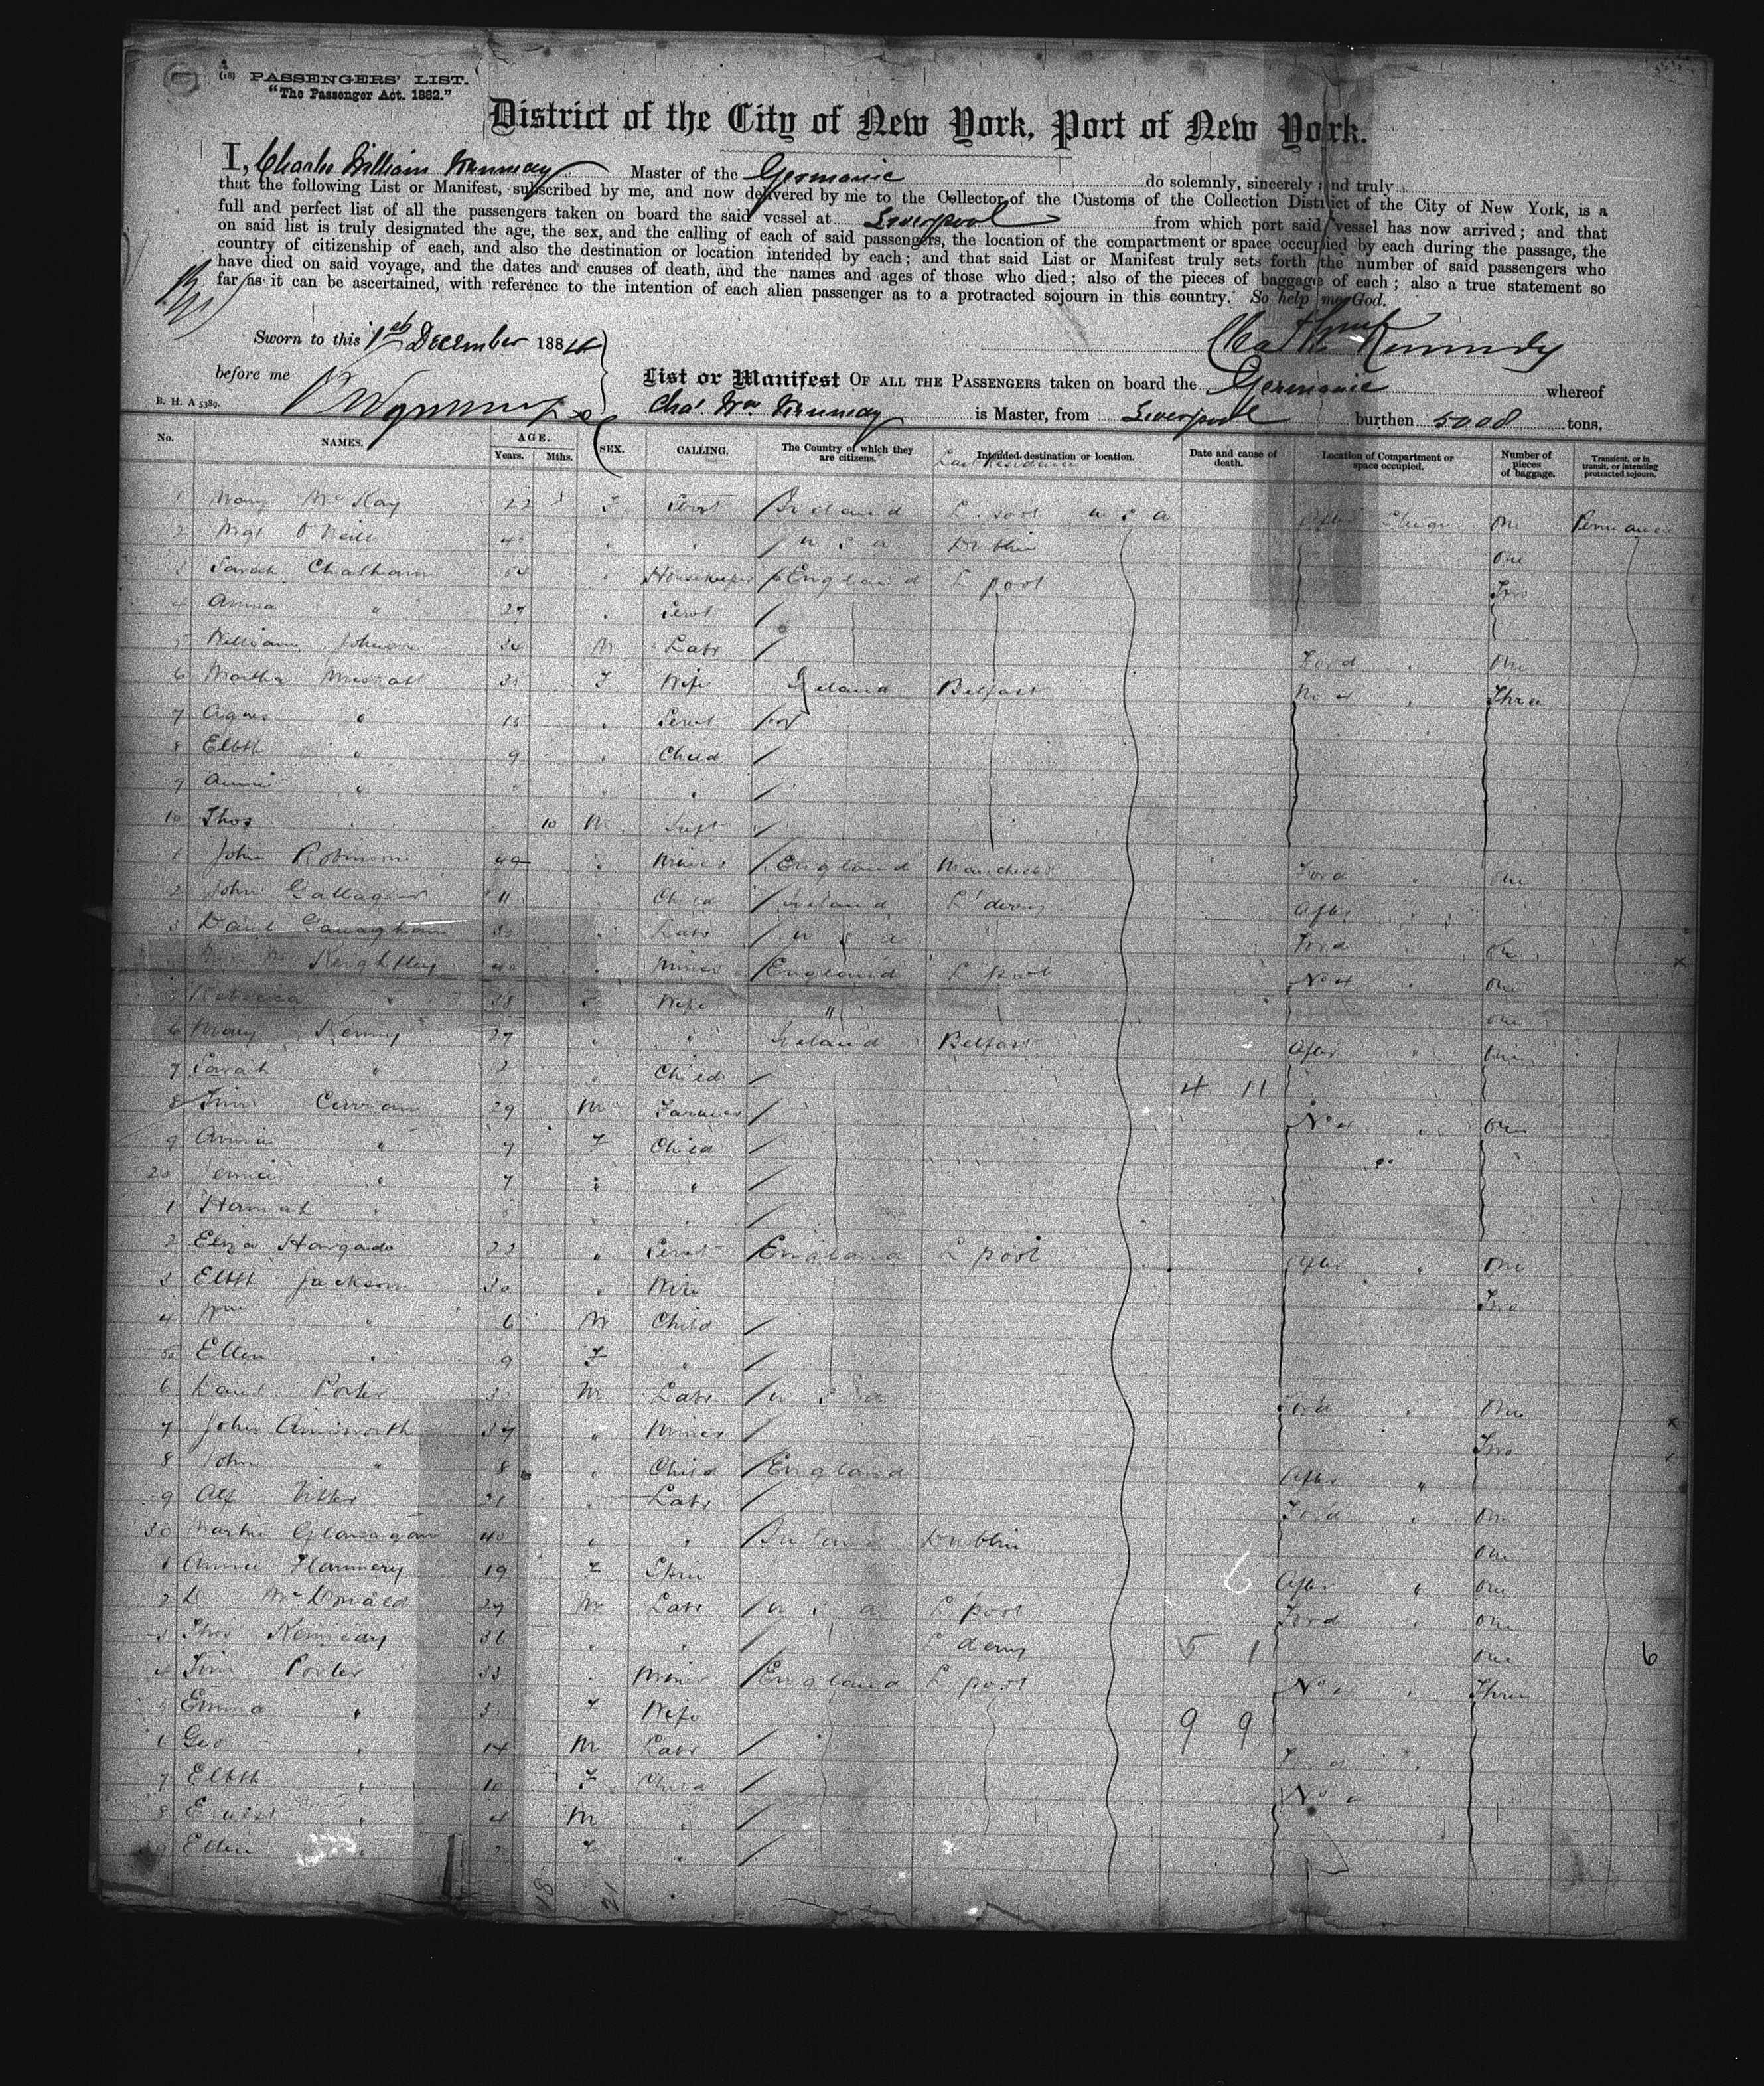 (18) PASSENGERS' LIST.
"The Passenger Act. 1882."
District of the City of New York, Port of New York.
I, Charles William Kennedy Master of the Germanic do solemnly, sincerely and truly
that the following List or Manifest, subscribed by me, and now delivered by me to the Collector of the Customs of the Collection District of the City of New York, is a
full and perfect list of all the passengers taken on board the said vessel at Liverpool from which port said vessel has now arrived; and that
on said list is truly designated the age, the sex, and the calling of each of said passengers, the location of the compartment or space occupied by each during the passage, the
country of citizenship of each, and also the destination or location intended by each; and that said List or Manifest truly sets forth the number of said passengers who
have died on said voyage, and the dates and causes of death, and the names and ages of those who died; also of the pieces of baggage of each; also a true statement so
far as it can be ascertained, with reference to the intention of each alien passenger as to a protracted sojourn in this country. So help me God.
Sworn to this 1st December 1884
before me
Kennedy
List or Manifest OF ALL THE PASSENGERS taken on board the Germanic whereof
B. H. A 5389.
Chas. Wm Kennedy is Master, from Liverpool burthen 5008 tons.
No. NAMES. AGE. Years. Mths. SEX. CALLING. The Country of which they are citizens. Intended destination or location. Date and cause of death. Location of Compartment or space occupied. Number of pieces of baggage. Transient, or in transit, or intending protracted sojourn.
Last Residence
1 Mary McKay 22 F Servt Ireland L.pool U S A After Steerge One Permanen
2 Mgt O'Neill 40 " " U S A Dublin One
3 Sarah Chatham 54 " Housekeeper England L pool Two
4 Anna " 27 " Servt
5 William Johnson 34 M Labr Ford " One
6 Martha 35 F Wife Ireland Belfast No 4 " Three
7 Agnes " 16 " Servt
8 Elbth " 9 " Child
9 Annie " " "
10 Thos 10 M Inft
1 John Robinson 49 " Miner England Manchester Ford " One
2 John Gallagher 11 Child Ireland L'derry After "
3 Danl 30 " Labr U S A " Ford " One
Keightley 40 " Miner England L pool No 4 " One
5 Rebecca " 38 F Wife " One
6 Mary Kenny 27 " " Ireland Belfast After " One
7 Sarah " " Child 4 11
8 Jim 29 M Farmer No 4 " One
9 Annie " 9 F Child
20 Jennie " 7 " "
1 Hannah " "
2 Eliza Hargado 22 " Servt England L pool After " One
3 Elbth Jackson 30 " Wife Two
4 Wm " 6 M Child
5 Ellen " 9 F "
6 Danl Porter 30 M Labr U S A Ford " One
7 John Ainsworth 37 " Miner Two
8 John " 8 " Child England After "
9 Alf 21 " Labr Ford " One
30 Martin 40 " " Ireland Dublin One
1 Annie Flannery 19 F Spin 6 After " One
2 D McDonald 29 M Labr U S A L pool Ford " One
3 Thos Kennedy 36 " " L derry 5 1 One 6
4 Jim Porter 33 " Miner England L pool No 4 " Three
5 Emma " F Wife 9 9
6 Geo " 14 M Labr Ford "
7 Elbth " 10 F Child No 4
8 " 4 M "
9 Ellen " 2 F "
18 21